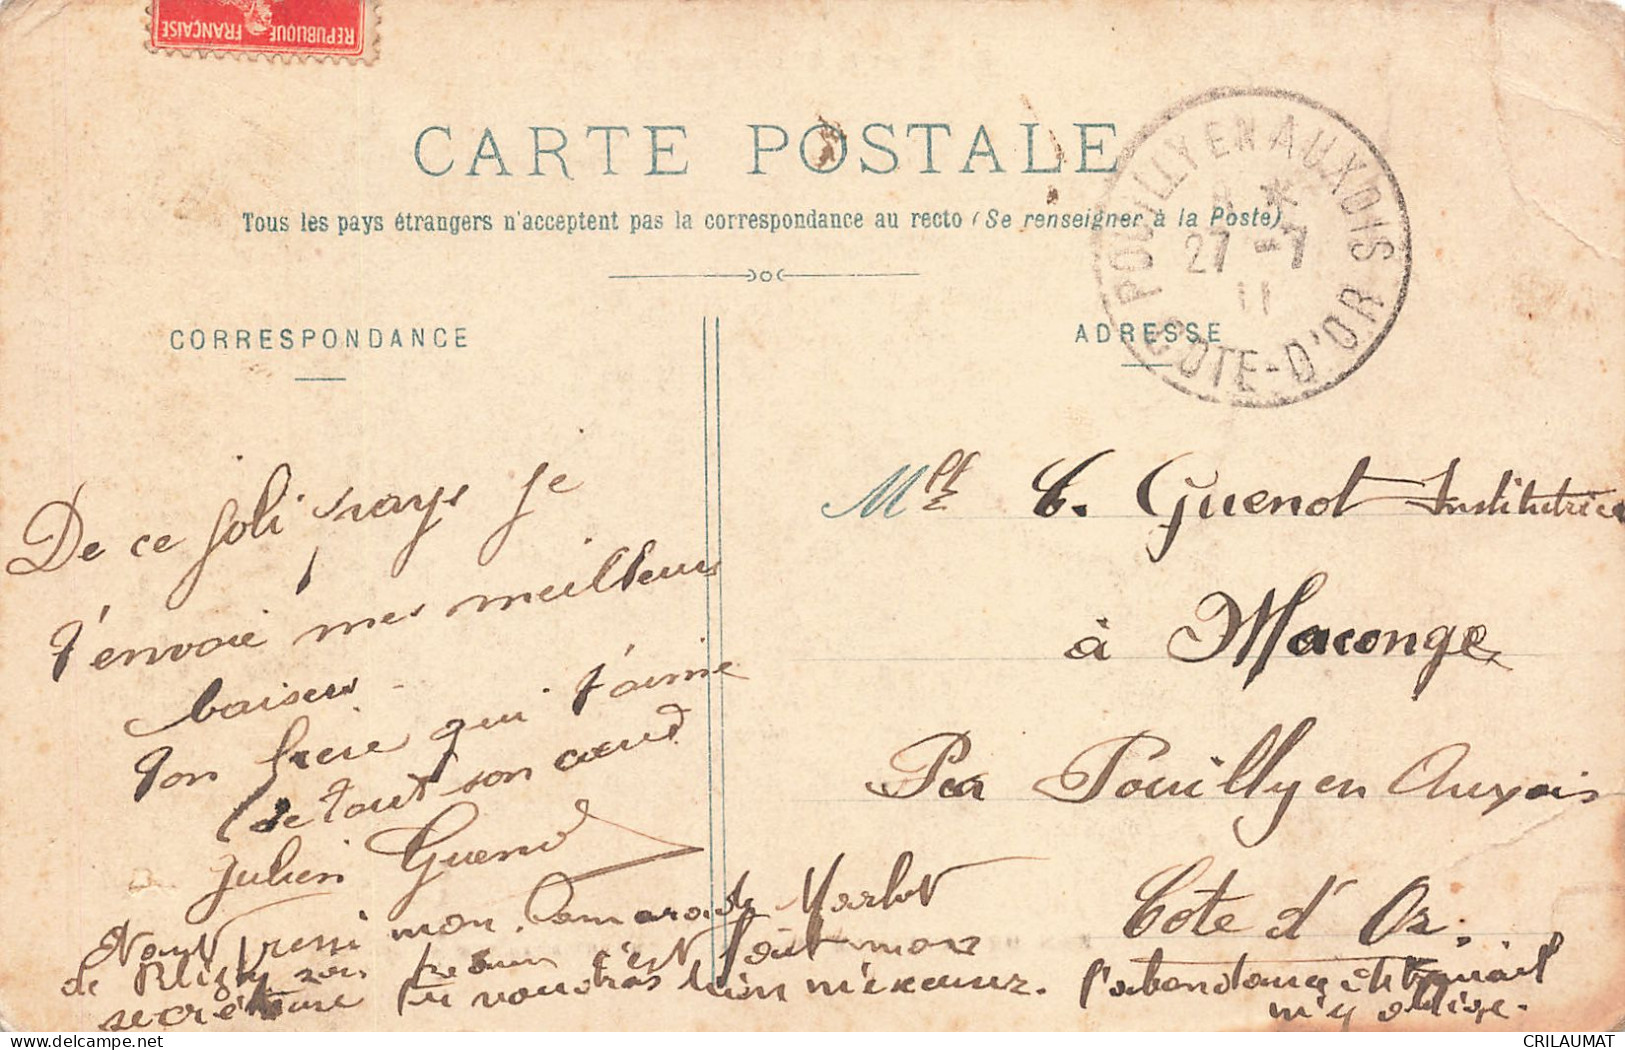 REPUBLIQUE FRANÇAISE
CARTE POSTALE
Tous les pays étrangers n'acceptent pas la correspondance au recto (Se renseigner à la Poste)
POUILLY EN AUXOIS
27 -7
11
COTE-D'OR
CORRESPONDANCE
ADRESSE
De ce joli pays je
t'envoie mes meilleurs
baisers.
Ton frère qui t'aime
de tout son cœur
Julien Guenot
Mlle C. Guenot Institutrice
à Maconge
Par Pouilly en Auxois
Cote d'Or.
mon camarade Marlot
de c'est fait mon
secrétaire tu voudras bien m'excuser. l'abondance de travail
m'y oblige.
CRILAUMAT